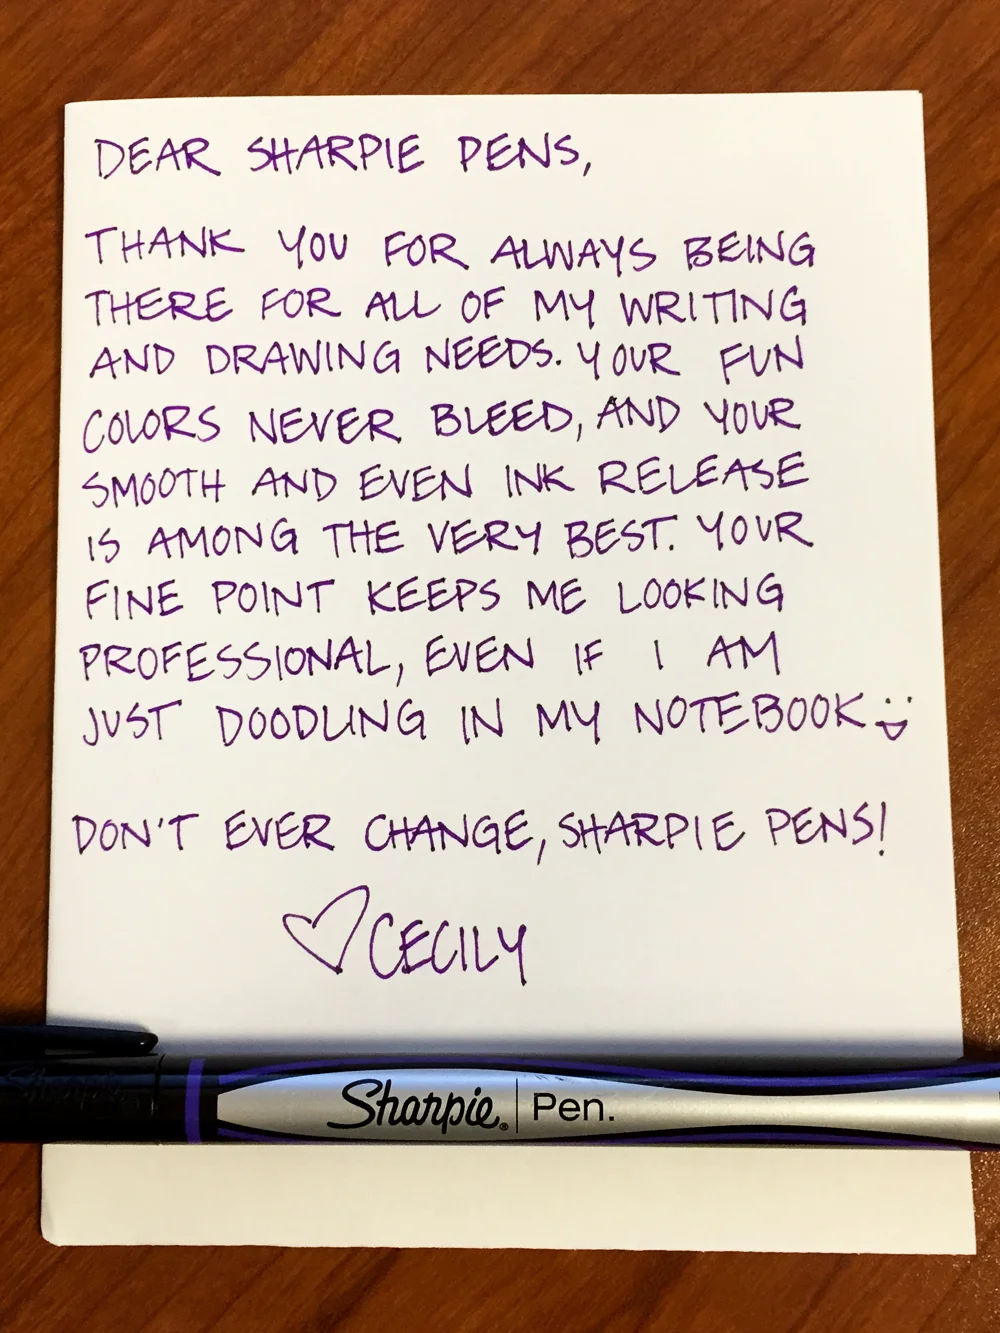 DEAR SHARPIE PENS,
THANK YOU FOR ALWAYS BEING
THERE FOR ALL OF MY WRITING
AND DRAWING NEEDS. YOUR FUN
COLORS NEVER BLEED, AND YOUR
SMOOTH AND EVEN INK RELEASE
IS AMONG THE VERY BEST. YOUR
FINE POINT KEEPS ME LOOKING
PROFESSIONAL, EVEN IF I AM
JUST DOODLING IN MY NOTEBOOK
DON'T EVER CHANGE, SHARPIE PENS!
♡ CECILY
Sharpie
Sharpie® | Pen.